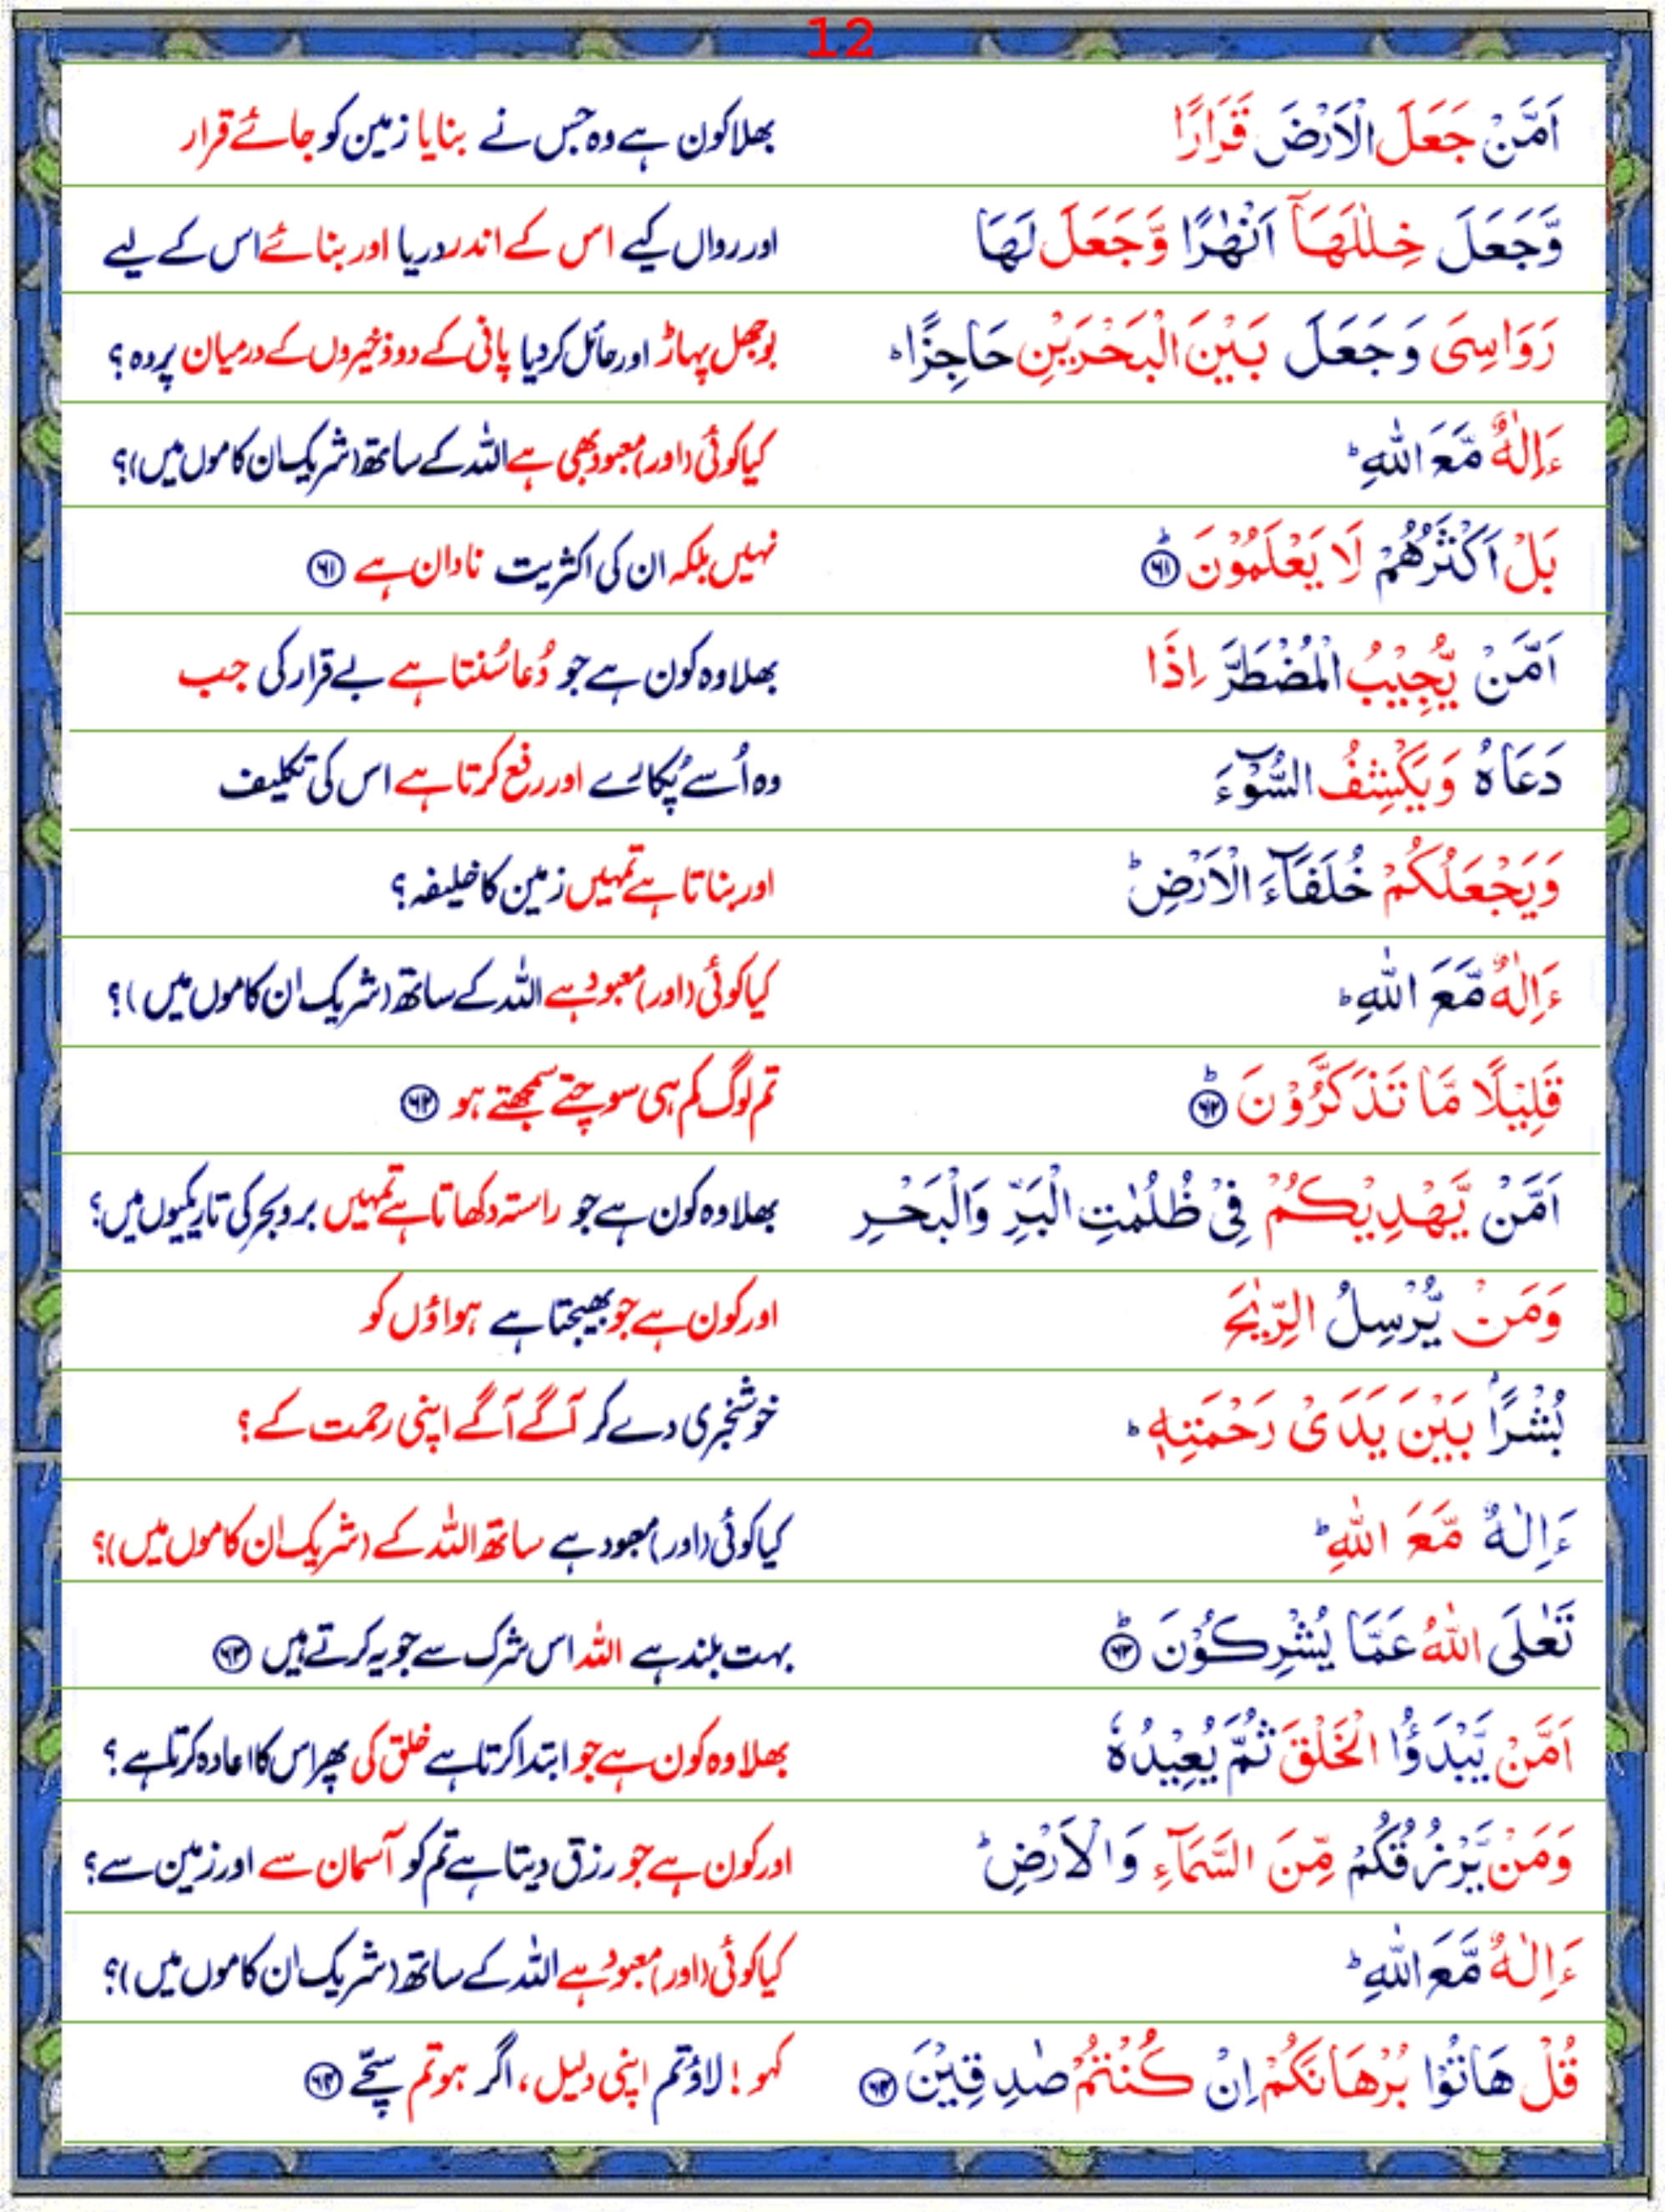 12
اَمَّنْ جَعَلَ الْاَرْضَ قَرَارًا بھلا کون ہے وہ جس نے بنایا زمین کو جائے قرار
وَّجَعَلَ خِلٰلَهَاۤ اَنْهٰرًا وَّجَعَلَ لَهَا اور رواں کیے اس کے اندر دریا اور بنائے اس کے لیے
رَوَاسِیَ وَجَعَلَ بَیْنَ الْبَحْرَیْنِ حَاجِزًا ؕ بوجھل پہاڑ اور حائل کر دیا پانی کے دو ذخیروں کے درمیان پردہ ؟
ءَاِلٰهٌ مَّعَ اللّٰهِ ؕ کیا کوئی (اور) معبود بھی ہے اللہ کے ساتھ (شریک ان کاموں میں)؟
بَلْ اَكْثَرُهُمْ لَا یَعْلَمُوْنَ ؕ ۶۱ نہیں بلکہ ان کی اکثریت نادان ہے ۶۱
اَمَّنْ یُّجِیْبُ الْمُضْطَرَّ اِذَا بھلا وہ کون ہے جو دُعا سُنتا ہے بے قرار کی جب
دَعَاهُ وَیَكْشِفُ السُّوْٓءَ وہ اُسے پُکارے اور رفع کرتا ہے اس کی تکلیف
وَیَجْعَلُكُمْ خُلَفَآءَ الْاَرْضِ ؕ اور بناتا ہے تمہیں زمین کا خلیفہ؟
ءَاِلٰهٌ مَّعَ اللّٰهِ ؕ کیا کوئی (اور) معبود ہے اللہ کے ساتھ (شریک ان کاموں میں)؟
قَلِیْلًا مَّا تَذَكَّرُوْنَ ؕ ۶۲ تم لوگ کم ہی سوچتے سمجھتے ہو ۶۲
اَمَّنْ یَّهْدِیْكُمْ فِیْ ظُلُمٰتِ الْبَرِّ وَالْبَحْرِ بھلا وہ کون ہے جو راستہ دکھاتا ہے تمہیں بر و بحر کی تاریکیوں میں؟
وَمَنْ یُّرْسِلُ الرِّیٰحَ اور کون ہے جو بھیجتا ہے ہواؤں کو
بُشْرًۢا بَیْنَ یَدَیْ رَحْمَتِهٖ ؕ خوشخبری دے کر آگے آگے اپنی رحمت کے؟
ءَاِلٰهٌ مَّعَ اللّٰهِ ؕ کیا کوئی (اور) معبود ہے ساتھ اللہ کے (شریک ان کاموں میں)؟
تَعٰلَی اللّٰهُ عَمَّا یُشْرِكُوْنَ ؕ ۶۳ بہت بلند ہے اللہ اس شرک سے جو یہ کرتے ہیں ۶۳
اَمَّنْ یَّبْدَؤُا الْخَلْقَ ثُمَّ یُعِیْدُهٗ بھلا وہ کون ہے جو ابتدا کرتا ہے خلق کی پھر اس کا اعادہ کرتا ہے ؟
وَمَنْ یَّرْزُقُكُمْ مِّنَ السَّمَآءِ وَالْاَرْضِ ؕ اور کون ہے جو رزق دیتا ہے تم کو آسمان سے اور زمین سے؟
ءَاِلٰهٌ مَّعَ اللّٰهِ ؕ کیا کوئی (اور) معبود ہے اللہ کے ساتھ (شریک ان کاموں میں)؟
قُلْ هَاتُوْا بُرْهَانَكُمْ اِنْ كُنْتُمْ صٰدِقِیْنَ ۶۴ کہو ! لاؤ تم اپنی دلیل، اگر ہو تم سچّے ۶۴